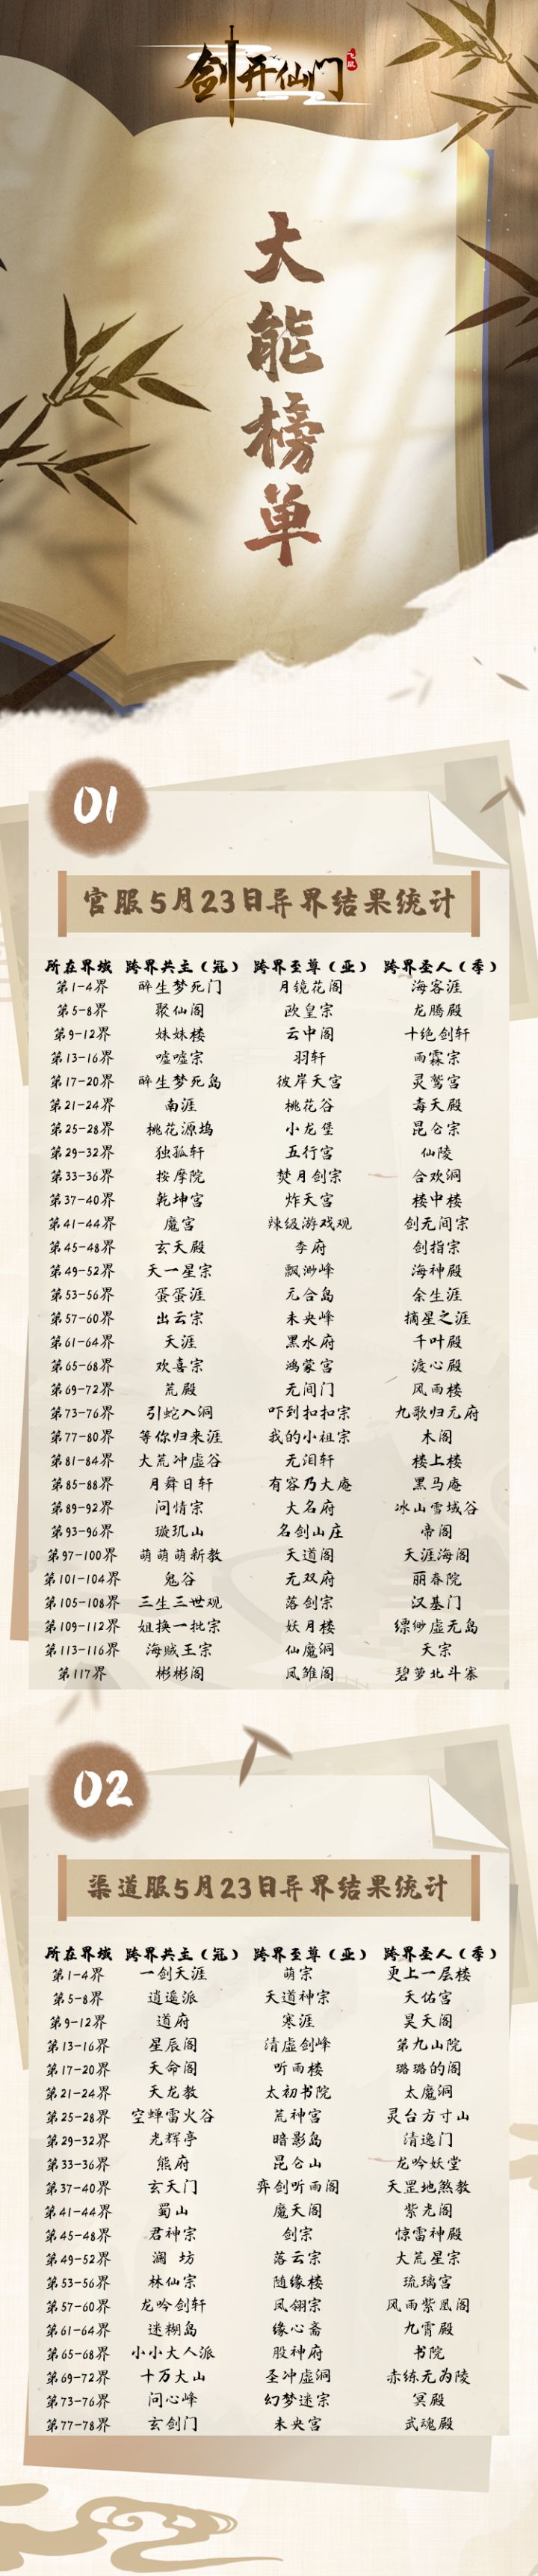 剑开仙门
飞跃
大能榜单
01
官服5月23日异界结果统计
所在界域 跨界共主（冠） 跨界至尊（亚） 跨界圣人（季）
第1-4界 醉生梦死门 月镜花阁 海客涯
第5-8界 聚仙阁 欧皇宗 龙腾殿
第9-12界 妹妹楼 云中阁 十绝剑轩
第13-16界 嘘嘘宗 羽轩 雨霖宗
第17-20界 醉生梦死岛 彼岸天宫 灵鹫宫
第21-24界 南涯 桃花谷 毒天殿
第25-28界 桃花源坞 小龙堡 昆仑宗
第29-32界 独孤轩 五行宫 仙陵
第33-36界 按摩院 焚月剑宗 合欢洞
第37-40界 乾坤宫 炸天宫 楼中楼
第41-44界 魔宫 辣级游戏观 剑无间宗
第45-48界 玄天殿 李府 剑指宗
第49-52界 天一星宗 飘渺峰 海神殿
第53-56界 蛋蛋涯 元合岛 余生涯
第57-60界 出云宗 未央峰 摘星之涯
第61-64界 天涯 黑水府 千叶殿
第65-68界 欢喜宗 鸿蒙宫 渡心殿
第69-72界 荒殿 无间门 风雨楼
第73-76界 引蛇入洞 吓到扣扣宗 九歌归元府
第77-80界 等你归来涯 我的小祖宗 木阁
第81-84界 大荒冲虚谷 无泪轩 楼上楼
第85-88界 月舞日轩 有容乃大庵 黑马庵
第89-92界 问情宗 大名府 冰山雪域谷
第93-96界 璇玑山 名剑山庄 帝阁
第97-100界 萌萌萌新教 天道阁 天涯海阁
第101-104界 鬼谷 无双府 丽春院
第105-108界 三生三世观 落剑宗 汉基门
第109-112界 姐换一批宗 妖月楼 缥缈虚无岛
第113-116界 海贼王宗 仙魔洞 天宗
第117界 彬彬阁 凤雏阁 碧萝北斗寨
02
渠道服5月23日异界结果统计
所在界域 跨界共主（冠） 跨界至尊（亚） 跨界圣人（季）
第1-4界 一剑天涯 萌宗 更上一层楼
第5-8界 逍遥派 天道神宗 天佑宫
第9-12界 道府 寒涯 昊天阁
第13-16界 星辰阁 清虚剑峰 第九山院
第17-20界 天命阁 听雨楼 璐璐的阁
第21-24界 天龙教 太初书院 太魔洞
第25-28界 空蝉雷火谷 荒神宫 灵台方寸山
第29-32界 光辉亭 暗影岛 清逸门
第33-36界 熊府 昆仑山 龙吟妖堂
第37-40界 玄天门 弈剑听雨阁 天罡地煞教
第41-44界 蜀山 魔天阁 紫光阁
第45-48界 君神宗 剑宗 惊雷神殿
第49-52界 澜 坊 落云宗 大荒星宗
第53-56界 林仙宗 随缘楼 琉璃宫
第57-60界 龙吟剑轩 凤翎宗 风雨紫凰阁
第61-64界 迷糊岛 缘心斋 九霄殿
第65-68界 小小大人派 股神府 书院
第69-72界 十万大山 圣冲虚洞 赤练无为陵
第73-76界 问心峰 幻梦迷宗 冥殿
第77-78界 玄剑门 未央宫 武魂殿